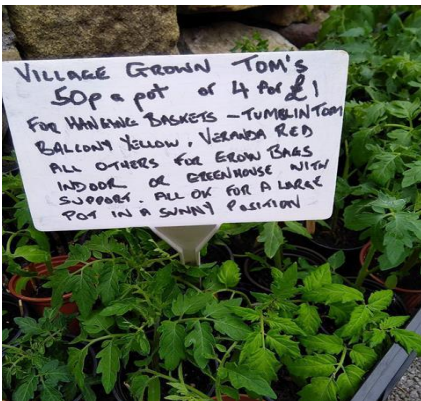 VILLAGE GROWN TOM'S
50p a pot or 4 for £1
FOR HANGING BASKETS - TUMBLIN TOM
BALCONY YELLOW, VERANDA RED
ALL OTHERS FOR GROW BAGS
INDOOR OR GREENHOUSE WITH
SUPPORT. ALL OK FOR A LARGE
POT IN A SUNNY POSITION